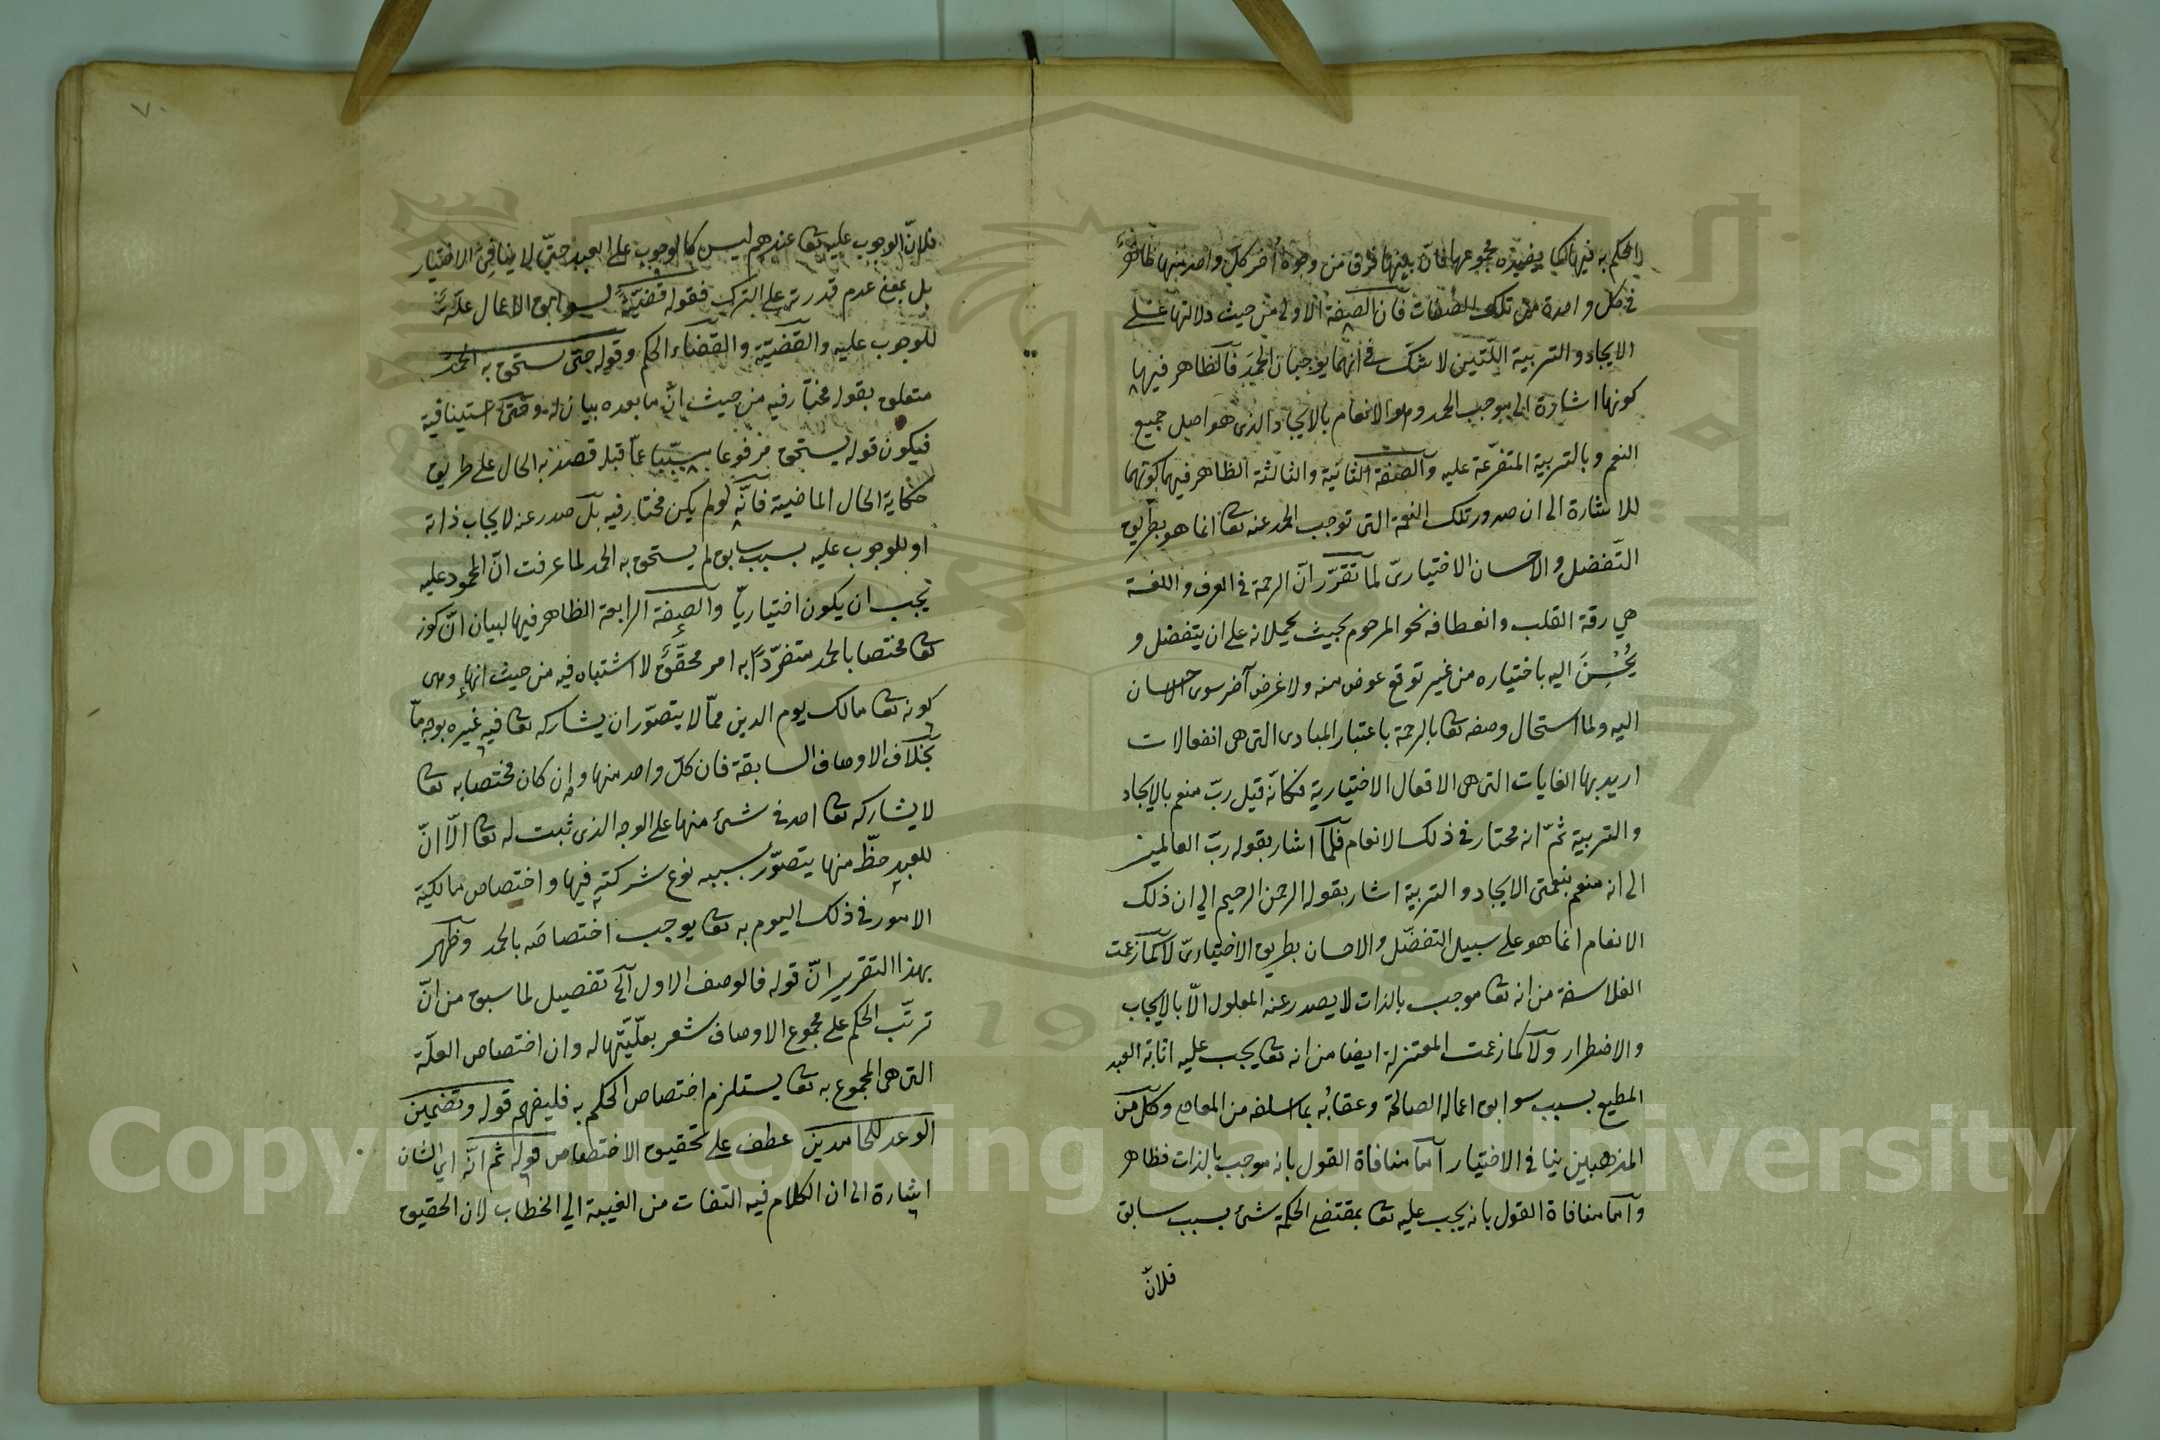 الحكم به فيها كما يفيده مجموعها فان بينها فرق من وجوه أخر كل واحد منها ظاهر
في كل واحدة من تلك الصفات فان الصفة الاولى من حيث دلالتها على
الايجاد والتربية اللتين لا شك في انهما يوجبان الحمد فالظاهر فيها
كونها اشارة الى موجب الحمد وهو الانعام بالايجاد الذى هو اصل جميع
النعم وبالتربية المتفرعة عليه والصفة الثانية والثالثة الظاهر فيهما كونهما
للاشارة الى ان صدور تلك النعمة التى توجب الحمد عنه تعا انما هو بطريق
التفضل والاحسان الاختيارىّ لما تقرّر انّ الرحمة فى العرف واللغة
هي رقة القلب وانعطافه نحو المرحوم بحيث يحملانه على ان يتفضل و
يُحْسِنَ اليه باختياره من غير توقع عوض منه ولا غرض آخر سوى الاحسان
اليه ولما استحال وصفه تعا بالرحمة باعتبار المبادى التى هى انفعالات
اريد بها الغايات التى هى الافعال الاختيارية فكانّه قيل ربّ منعم بالايجاد
والتربية ثمّ انه مختار فى ذلك الانعام فلما اشار بقوله ربّ العالمين
الى انه منعم بنعمتى الايجاد والتربية اشار بقوله الرحمن الرحيم الي ان ذلك
الانعام انما هو على سبيل التفضّل والاحسان بطريق الاختيارىّ لا كما زعمت
الفلاسفة من انه تعا موجب بالذات لا يصدر عنه المعلول الّا بالايجاب
والاضطرار ولا كما زعمت المعتزلة ايضا من انه تعا يجب عليه اثابة العبد
المطيع بسبب سوابق اعماله الصالحة وعقابُه بما اسلفه من المعاصى وكل من
المذهبين ينافى الاختيار امّا منافاة القول بانه موجب بالذات فظاهر
وامّا منافاة القول بانه يجب عليه تعا بمقتضى الحكمة شئ بسبب سابق
فلانّ
٧٠
فلانّ الوجوب عليه تعا عندهم ليس كالوجوب على العبد حتّى لا ينافى الاختيار
بل بمعنى عدم قدرته على الترك فقوله قضيّةً لسوابق الاعمال علّة
للوجوب عليه والقضيّة والقضاء الحكم وقوله حتى يستحق به الحمد
متعلق بقوله مختار فيه من حيث انّ ما بعده بيان له وحتى استينافية
فيكون قوله يستحق مرفوعا مسبّبا عمّا قبله قصد به الحال على طريق
حكاية الحال الماضية فانّه لو لم يكن مختار فيه بل صدر عنه لايجاب ذاته
او للوجوب عليه بسبب سابق لم يستحق به الحمد لما عرفت انّ المحمود عليه
يجب ان يكون اختياريّا والصفة الرابعة الظاهر فيها لبيان انّ كونه
تعا مختصا بالحمد متفرّدًا به امر محقّق لا اشتباه فيه من حيث انها وهى
كونه تعا مالك يوم الدين ممّا لا يتصوّر ان يشاركه تعا فيه غيره بوجه مّا
بخلاف الاوصاف السابقة فان كلّ واحد منها وإن كان مختصا به تعا
لا يشاركه تعا احد فى شئ منها على الوجه الذى ثبت له تعا الّا انّ
للعبد حظّ منها يتصوّر بسببه نوع شركته فيها واختصاص مالكية
الامور فى ذلك اليوم به تعا يوجب اختصاصَه بالحمد وظهر
بهذا التقرير انّ قوله فالوصف الاول آلخ تفصيل لما سبق من انّ
ترتّب الحكم على مجموع الاوصاف شعر بعلّيّتها له وان اختصاص العلّة
التى هى المجموع به تعا يستلزم اختصاص الحكم به فليفهم قوله وتضمين
الوعد للحامدين عطف على تحقيق الاختصاص قوله ثم انّه اى الشان
اشارة الى ان الكلام فيه التفات من الغيبة الي الخطاب لان الحقيق
Copyright © King Saud University